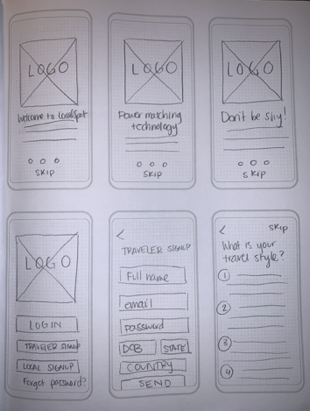 LOGO
Welcome to LocalSpot
SKIP
LOGO
Power matching
technology
SKIP
LOGO
Don't be shy!
SKIP
LOGO
LOGIN
TRAVELER SIGNUP
LOCAL SIGNUP
Forgot password?
<
TRAVELER SIGNUP
Full name
email
password
DOB
STATE
COUNTRY
SEND
<
SKIP
What is your
travel style?
1
2
3
4